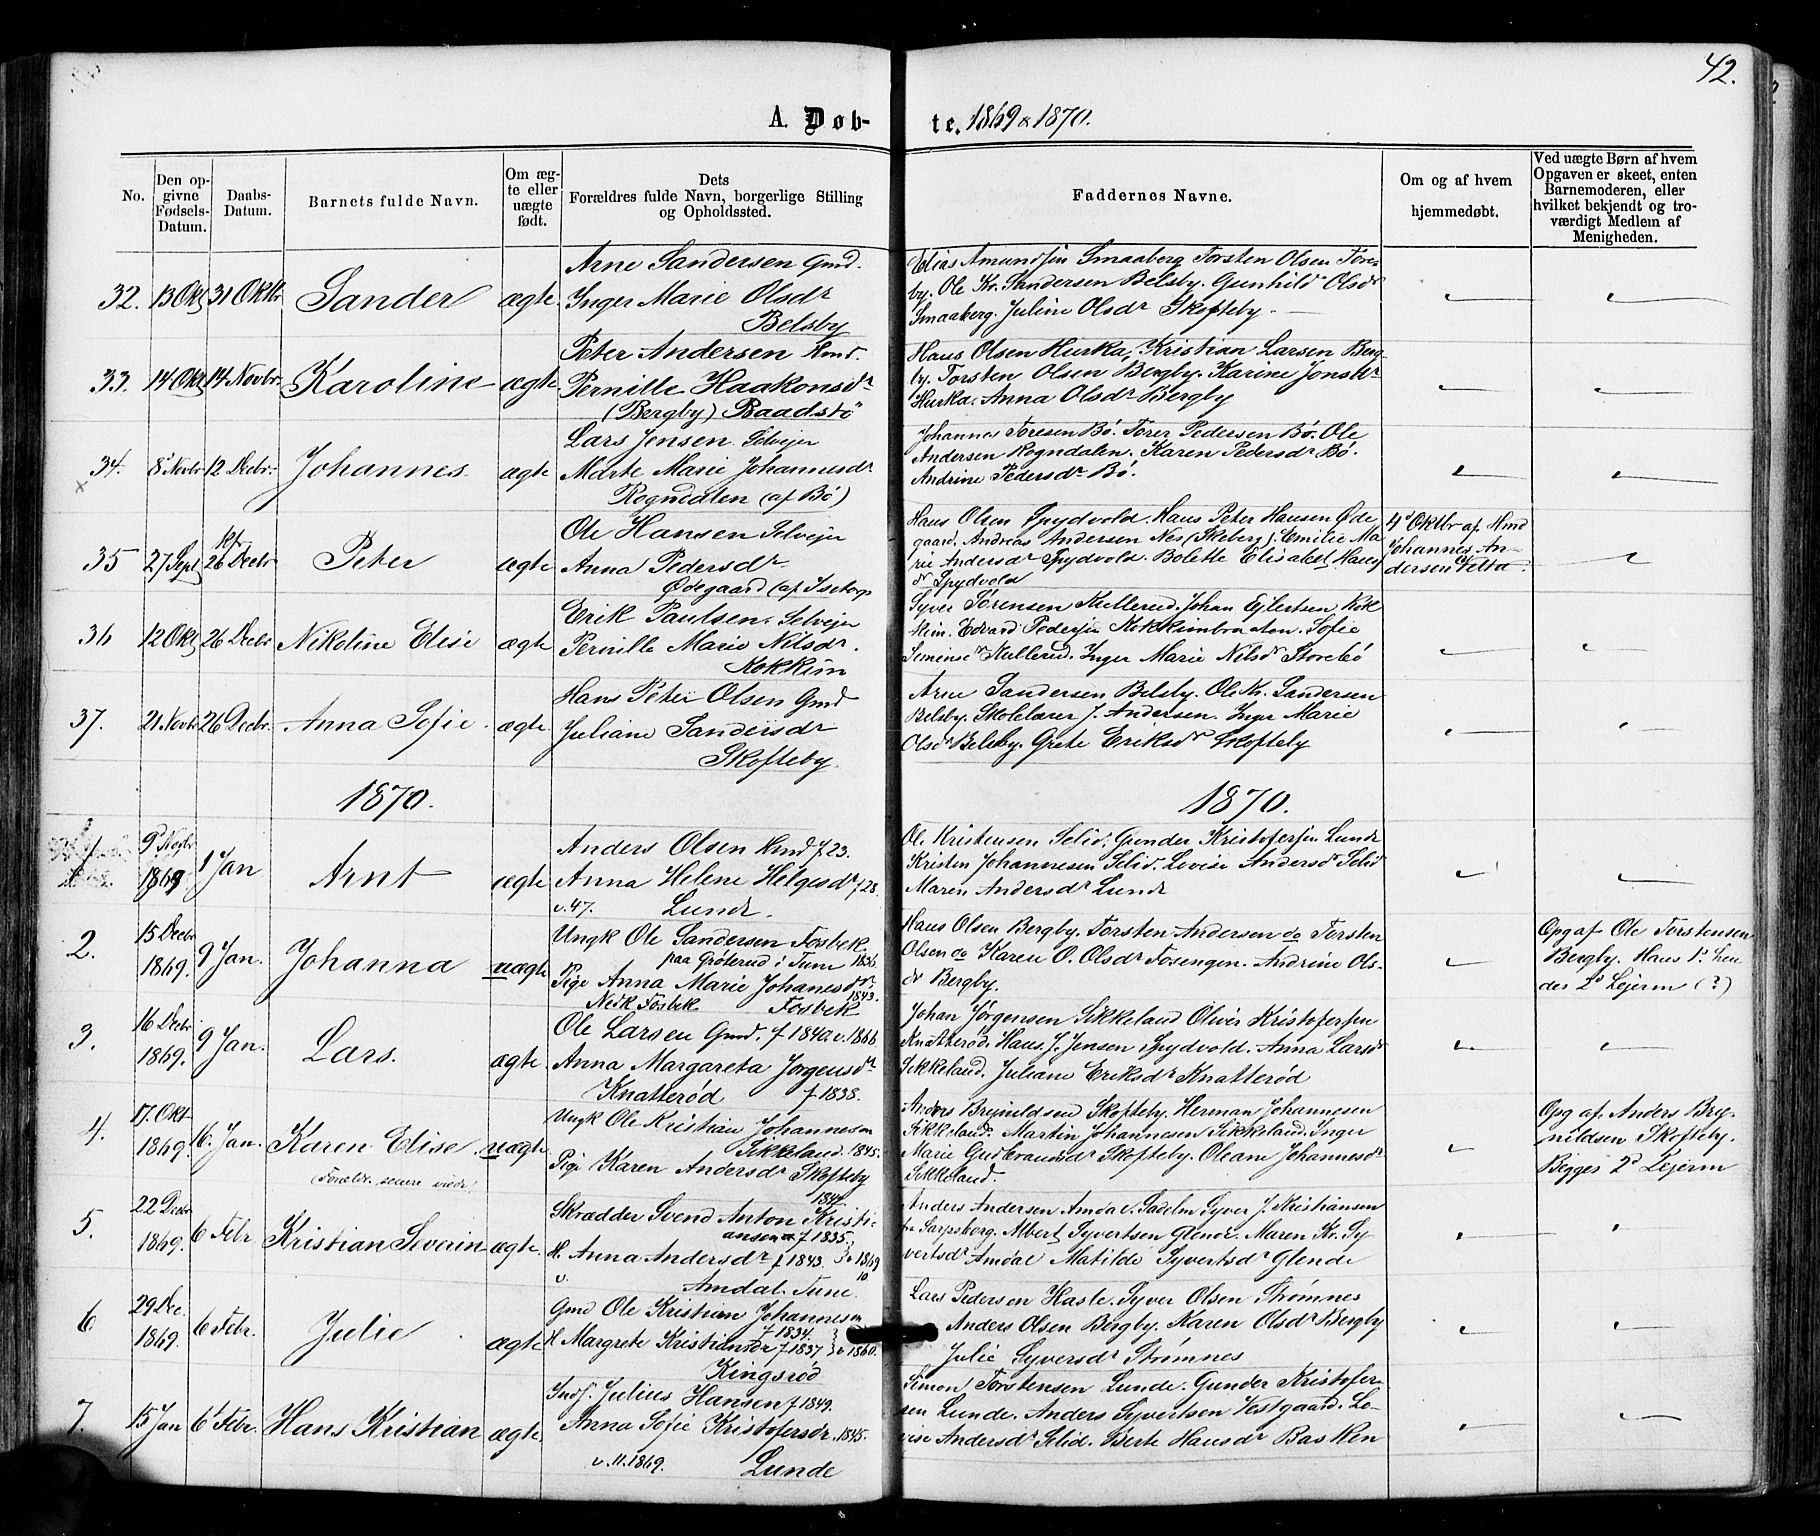 42.
A. Døb- te. 1869 & 1870.
No.
Den op-
givne
Fødsels-
Datum.
Daabs-
Datum.
Barnets fulde Navn.
Om æg-
te eller
uægte
født.
Dets
Forældres fulde Navn, borgerlige Stilling
og Opholdssted.
Faddernes Navne.
Om og af hvem
hjemmedøbt.
Ved uægte Børn af hvem
Opgaven er skeet, enten
Barnemoderen, eller
hvilket bekjendt og tro-
værdigt Medlem af
Menigheden.
32. 13 Okt 31 Oktbr Sander ægte
Arne Sandersen Gmd.
Inger Marie Olsdr
Belsby
Elias Amundsen Smaaberg Torsten Olsen Tore-
by. Ole Kr. Sandersen Belsby. Gunhild Olsdr
Smaaberg. Juline Olsdr Skofteby.
33. 14 Okt 14 Novbr Karoline ægte
Peter Andersen Hmd.
Pernille Haakonsdr
(Bergby) Baadstø
Hans Olsen Hurka, Kristian Larsen Berg-
by. Torsten Olsen Bergby. Karine Jonsdr
Hurka. Anna Olsdr Bergby
34. 8 Novbr 12 Decbr. Johannes ægte
Lars Jensen Selvejer
Marte Marie Johannesdr
Rogndalen (af Bö)
Johannes Toresen Bö. Torer Pedersen Bö. Ole
Andersen Rogndalen. Karen Pedersdr Bö.
Andrine Pedersdr Bö.
35 27 Sept 26 Decbr Peter ægte
Ole Hansen Selvejer
Anna Pedersdr
Ødegaard (af Isetorp
Hans Olsen Spydvold. Hans Peter Hansen Øde
gaard. Andreas Andersen Nes (Skeberg). Emilie Ma-
rie Andersdr Spydvold. Bolette Elisabet Hans
dr Spydvold
4 Oktbr af Hmd
Johannes An-
dersen Vetta.
36 12 Okt 26 Decbr Nikoline Elise ægte
Erik Paulsen. Selvejer
Pernille Marie Nilsdr.
Kokkim
Syver Sørensen Kullerud. Johan Ejlertsen Kok
kim. Edvard Pedersen Kokkimbraaten. Sofie
Kullerud. Inger Marie Nilsdr Storebö
37. 21 Novbr 26 Decbr. Anna Sofie. ægte
Hans Peter Olsen Gmd
Juliane Sandersdr
Skofteby.
Arne Sandersen Belsby. Ole Kr. Sandersen
Belsby. Skolelærer J. Andersen. Inger Marie
Olsdr Belsby. Grete Eriksdr Skofteby
1870. 1870.
1 9 Novbr 1869 1 Jan Arnt ægte
Anders Olsen Hmd f 23.
Anna Helene Helgesdr f 28.
v. 47. Lunde.
Ole Kristensen Selid. Gunder Kristofersen Lunde
Kristen Johannesen Selid. Lovise Andersdr Selid
Maren Andersdr Lunde
2. 15 Decbr 1869. 9 Jan. Johanna uægte
Ungk Ole Sandersen Fosbek
paa Gröterud i Tune 1836.
Pige Anna Marie Johanesdr
1843.
Nedr Fosbek Fosbek
Hans Olsen Bergby. Torsten Andersen do Torsten
Olsen do Karen O. Olsdr Fosengen. Andrine Ols-
dr Bergby.
Opg af Ole Torstensen
Bergby. Hans 1ste hen
des 2d Lejerm (?)
3. 16 Decbr 1869. 9 Jan. Lars. ægte
Ole Larsen Gmd. f 1840 v. 1866
Anna Margareta Jörgensdr
Knatteröd f 1838.
Johan Jörgensen Sikkeland Oliver Kristofersen
Knatteröd. Hans J. Jensen Spydvold. Anna Larsdr
Sikkeland. Juliane Eriksdr Knatteröd
4. 17. Okt 1869. 16. Jan. Karen Elise. uægte
(Foreldr. senere viede)
Ungk Ole Kristian Johannesen
Sikkeland. 1845.
Pige Karen Andersdr Skofteby
1847
Anders Brynildsen Skofteby. Herman Johannesen
Sikkeland. Martin Johannesen Sikkeland. Inger
Marie Gudbrandsdr Skofteby. Oleane Johannesdr
Sikkeland.
Opg af. Anders Bry-
nildsen Skofteby.
Begges 2d Lejerm
5. 22 Decbr 1869. 6 Febr. Kristian Severin ægte
Skrædder Svend Anton Kristi-
ansen f 1835.
H. Anna Andersdr f 1843. } v 1869
Amdal. Tune.
Anders Andersen Amdal. Sadelm Syver J. Kristiansen
fra Sarpsborg. Albert Syvertsen Glende. Maren Kr. Sy
vertsdr Amdal Matilde Syvertsdr Glende
6 29 Dec. 1869. 6 Febr. Julie ægte
Gmd Ole Kristian Johannesen
f 1834.
H Margrete Kristiansdr f 1837 } v 1860.
Kingsröd
Lars Pedersen Hasle. Syver Olsen Strømnes
Anders Olsen Bergby. Karen Olsdr Bergby
Julie Syversdr Strømnes
7. 15 Jan 6 Febr. Hans Kristian ægte
Indf. Julius Hansen f 1849.
Anna Sofie Kristofersdr. 1845.
v. 11. 1869. Lunde
Simon Torstensen Lunde. Gunder Kristofer-
sen Lunde. Anders Syvertsen Vestgaard. Lo-
vise Andersdr Selid. Berte Hansdr Basken